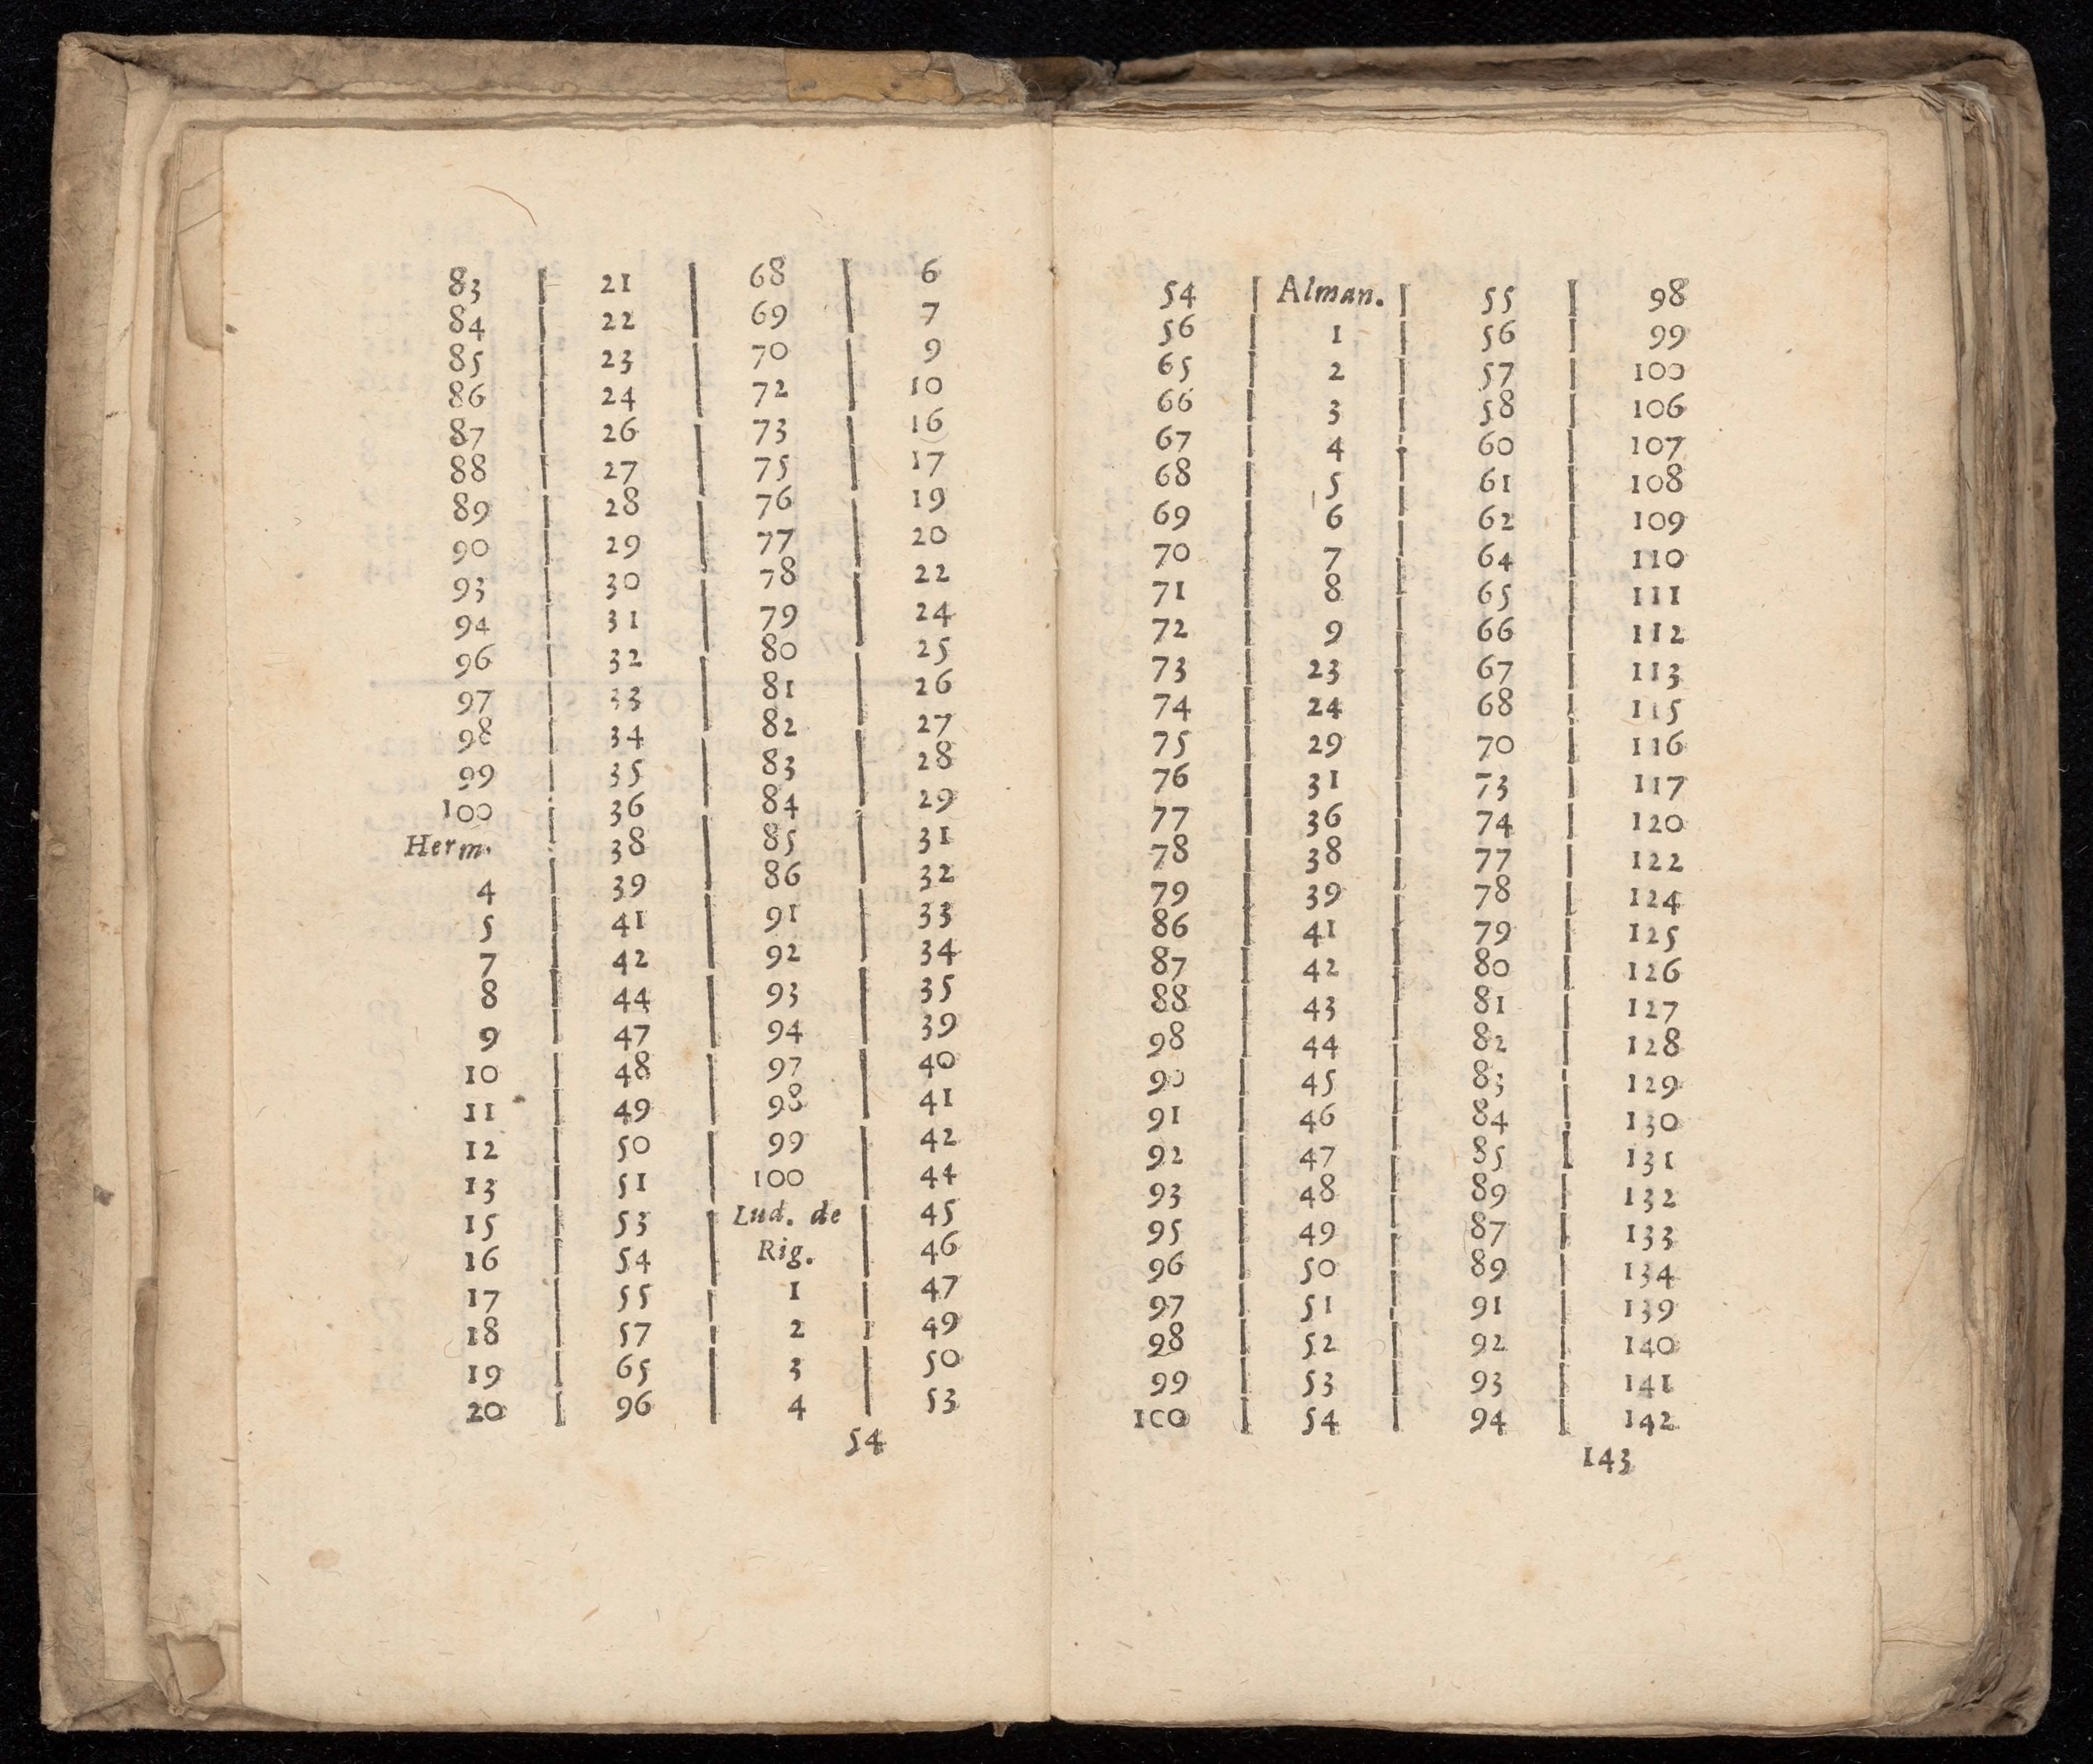 83
84
85
86
87
88
89
90
93
94
96
97
98
99
100
Herm.
4
5
7
8
9
10
11
12
13
15
16
17
18
19
20
21
22
23
24
26
27
28
29
30
31
32
33
34
35
36
38
39
41
42
44
47
48
49
50
51
53
54
55
57
65
96
68
69
70
72
73
75
76
77
78
79
80
81
82
83
84
85
86
91
92
93
94
97
98
99
100
Lud. de
Rig.
1
2
3
4
6
7
9
10
16
17
19
20
22
24
25
26
27
28
29
31
32
33
34
35
39
40
41
42
44
45
46
47
49
50
53
54
54
56
65
66
67
68
69
70
71
72
73
74
75
76
77
78
79
86
87
88
98
90
91
92
93
95
96
97
98
99
100
Alman.
1
2
3
4
5
6
7
8
9
23
24
29
31
36
38
39
41
42
43
44
45
46
47
48
49
50
51
52
53
54
55
56
57
58
60
61
62
64
65
66
67
68
70
73
74
77
78
79
80
81
82
83
84
85
89
87
89
91
92
93
94
98
99
100
106
107
108
109
110
111
112
113
115
116
117
120
122
124
125
126
127
128
129
130
131
132
133
134
139
140
141
142
143